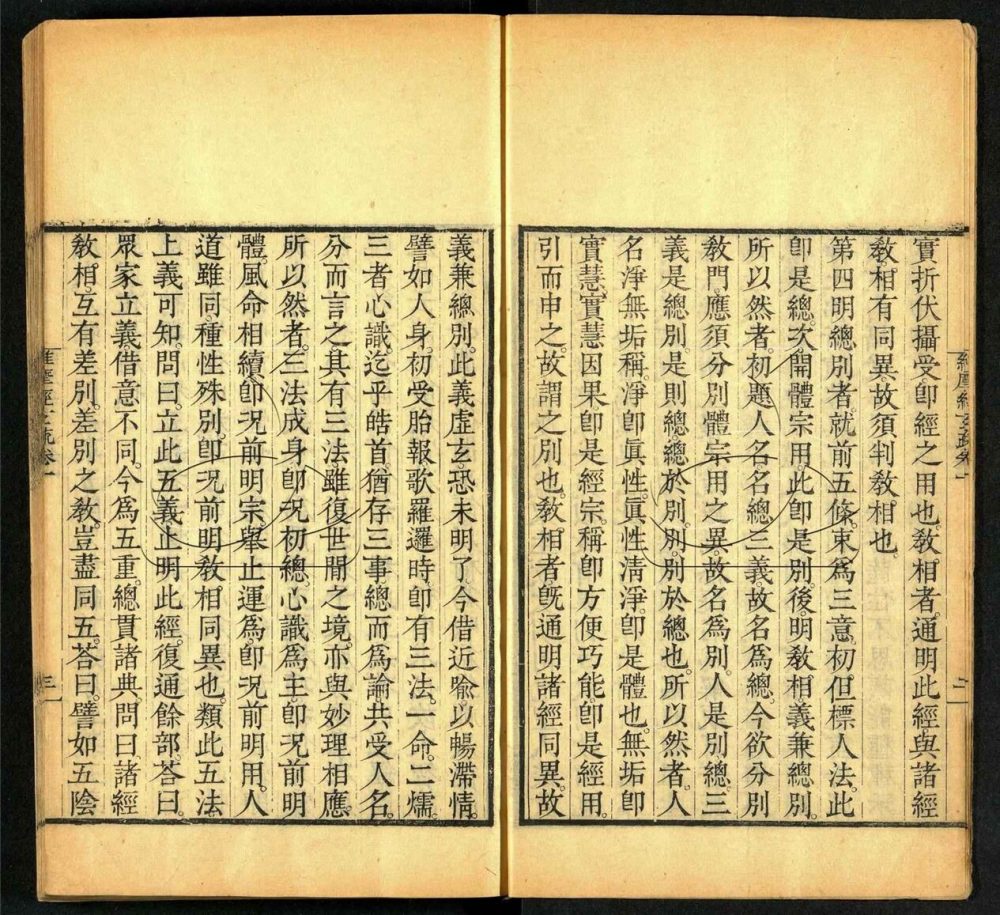 實折伏攝受卽經之用也。敎相者。通明此經與諸經
敎相有同異。故須判敎相也。
第四明總別者。就前五條。束爲三意。初但標人法。此
卽是總。次開體宗用。此卽是別。後明敎相。義兼總別。
所以然者。初題人名。名總三義。故名爲總。今欲分別
敎門。應須分別體宗用之異。故名爲別。人是別總。三
義是總別。是則總總於別。別別於總也。所以然者。人
名淨無垢稱。淨卽眞性。眞性淸淨。卽是體也。無垢卽
實慧。實慧因果卽是經宗。稱卽方便巧能卽是經用。
引而申之。故謂之別也。敎相者旣通明諸經同異。故
義兼總別。此義虛玄。恐未明了。今借近喩以暢滯情。
譬如人身初受胎報歌羅邏時。卽有三法。一命。二煗。
三者心識。迄乎皓首。猶存三事。總而爲論。共受人名。
分而言之。具有三法。雖復世間之境。亦與妙理相應。
所以然者。三法成身。卽況初總。心識爲主。卽況前明
體。風命相續。卽況前明宗。舉止運爲卽況前明用。人
道雖同。種性殊別。卽況前明敎相同異也。類此五法
上義可知。問曰。立此五義。止明此經。復通餘部。荅曰。
眾家立義。借意不同。今爲五重。總貫諸典。問曰。諸經
敎相。互有差別。差別之敎。豈盡同五。荅曰。譬如五陰
維摩經玄疏卷一
二
維摩經玄疏卷一
三